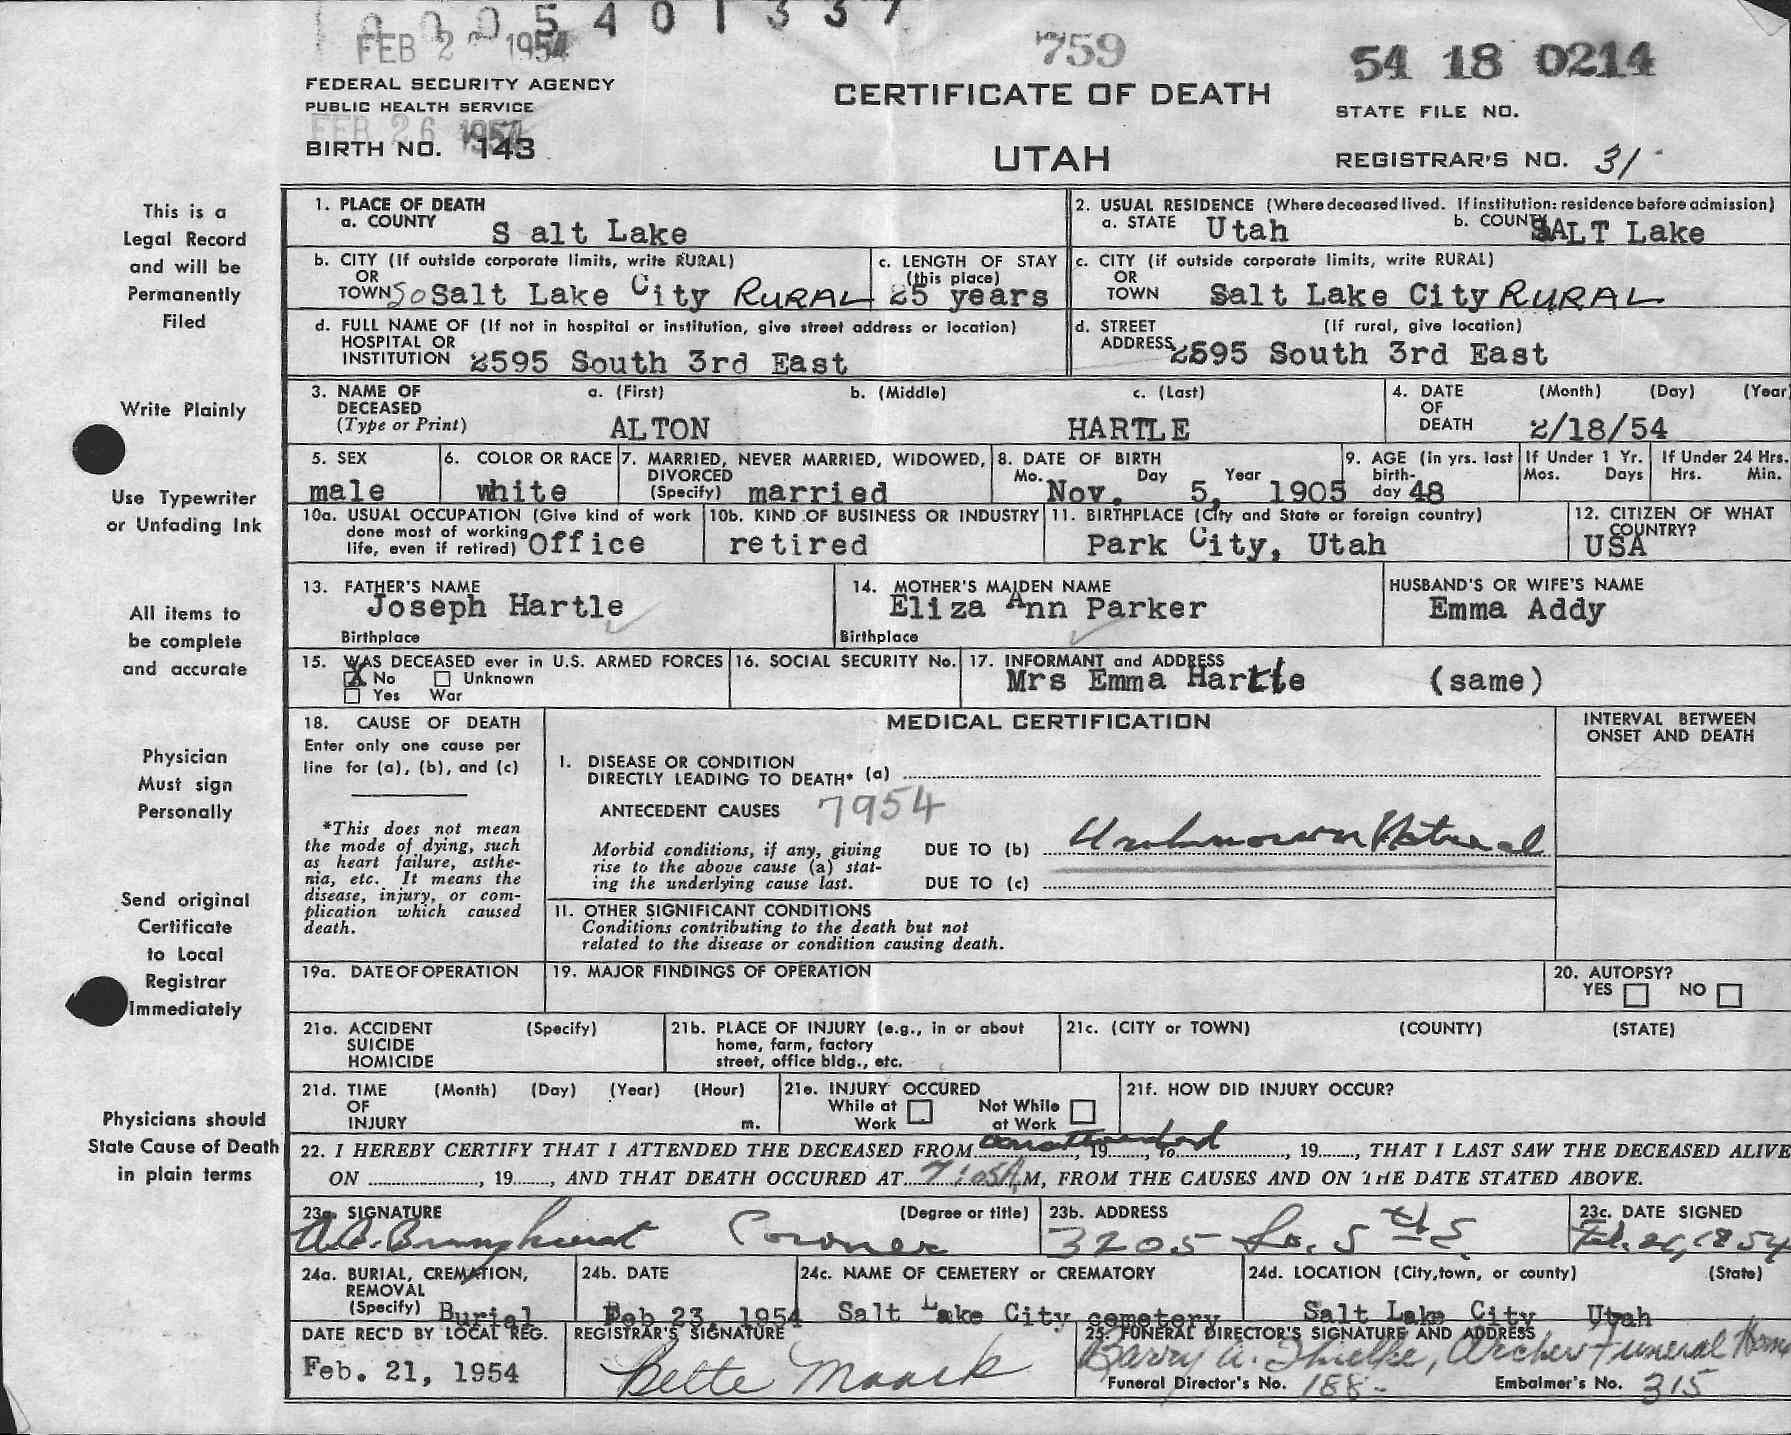 5 4 0 1 3 3 7
FEB 2 1954
759
54 18 0214
FEDERAL SECURITY AGENCY
PUBLIC HEALTH SERVICE
CERTIFICATE OF DEATH
STATE FILE NO.
FEB 26 1954
BIRTH NO. 143
UTAH
REGISTRAR'S NO. 31
This is a
Legal Record
and will be
Permanently
Filed
Write Plainly
Use Typewriter
or Unfading Ink
All items to
be complete
and accurate
Physician
Must sign
Personally
Send original
Certificate
to Local
Registrar
Immediately
Physicians should
State Cause of Death
in plain terms
1. PLACE OF DEATH
a. COUNTY S alt Lake
2. USUAL RESIDENCE (Where deceased lived. If institution: residence before admission)
a. STATE Utah b. COUNTY SALT Lake
b. CITY (If outside corporate limits, write RURAL)
OR
TOWN So Salt Lake City RURAL
c. LENGTH OF STAY
(this place)
25 years
c. CITY (if outside corporate limits, write RURAL)
OR
TOWN Salt Lake City RURAL
d. FULL NAME OF (If not in hospital or institution, give street address or location)
HOSPITAL OR
INSTITUTION 2595 South 3rd East
d. STREET (If rural, give location)
ADDRESS 2595 South 3rd East
3. NAME OF a. (First) b. (Middle) c. (Last)
DECEASED
(Type or Print) ALTON HARTLE
4. DATE (Month) (Day) (Year)
OF
DEATH 2/18/54
5. SEX
male
6. COLOR OR RACE
white
7. MARRIED, NEVER MARRIED, WIDOWED,
DIVORCED
(Specify) married
8. DATE OF BIRTH
Mo. Day Year
Nov. 5, 1905
9. AGE (in yrs. last
birth-
day 48
If Under 1 Yr.
Mos. Days
If Under 24 Hrs.
Hrs. Min.
10a. USUAL OCCUPATION (Give kind of work
done most of working
life, even if retired) Office
10b. KIND OF BUSINESS OR INDUSTRY
retired
11. BIRTHPLACE (City and State or foreign country)
Park City, Utah
12. CITIZEN OF WHAT
COUNTRY?
USA
13. FATHER'S NAME
Joseph Hartle
Birthplace
14. MOTHER'S MAIDEN NAME
Eliza Ann Parker
Birthplace
HUSBAND'S OR WIFE'S NAME
Emma Addy
15. WAS DECEASED ever in U.S. ARMED FORCES
X No Unknown
Yes War
16. SOCIAL SECURITY No.
17. INFORMANT and ADDRESS
Mrs Emma Hartle (same)
18. CAUSE OF DEATH
Enter only one cause per
line for (a), (b), and (c)
*This does not mean
the mode of dying, such
as heart failure, asthe-
nia, etc. It means the
disease, injury, or com-
plication which caused
death.
MEDICAL CERTIFICATION
INTERVAL BETWEEN
ONSET AND DEATH
I. DISEASE OR CONDITION
DIRECTLY LEADING TO DEATH* (a)
ANTECEDENT CAUSES 7954
Morbid conditions, if any, giving
rise to the above cause (a) stat-
ing the underlying cause last.
DUE TO (b) Unknown Natural
DUE TO (c)
II. OTHER SIGNIFICANT CONDITIONS
Conditions contributing to the death but not
related to the disease or condition causing death.
19a. DATE OF OPERATION
19. MAJOR FINDINGS OF OPERATION
20. AUTOPSY?
YES NO
21a. ACCIDENT (Specify)
SUICIDE
HOMICIDE
21b. PLACE OF INJURY (e.g., in or about
home, farm, factory
street, office bldg., etc.
21c. (CITY or TOWN) (COUNTY) (STATE)
21d. TIME (Month) (Day) (Year) (Hour)
OF
INJURY m.
21e. INJURY OCCURED
While at Work Not While at Work
21f. HOW DID INJURY OCCUR?
22. I HEREBY CERTIFY THAT I ATTENDED THE DECEASED FROM , 19 , to , 19 , THAT I LAST SAW THE DECEASED ALIVE
ON , 19 , AND THAT DEATH OCCURED AT 7:05A M, FROM THE CAUSES AND ON THE DATE STATED ABOVE.
23a. SIGNATURE (Degree or title)
Coroner
23b. ADDRESS
3205 So. 5th E.
23c. DATE SIGNED
24a. BURIAL, CREMATION,
REMOVAL
(Specify) Burial
24b. DATE
Feb 23, 1954
24c. NAME OF CEMETERY or CREMATORY
Salt Lake City cemetery
24d. LOCATION (City, town, or county) (State)
Salt Lake City Utah
DATE REC'D BY LOCAL REG.
Feb. 21, 1954
REGISTRAR'S SIGNATURE
Bette Maack
25. FUNERAL DIRECTOR'S SIGNATURE AND ADDRESS
Barry A. Thielke, Archer Funeral Home
Funeral Director's No. 188 Embalmer's No. 315